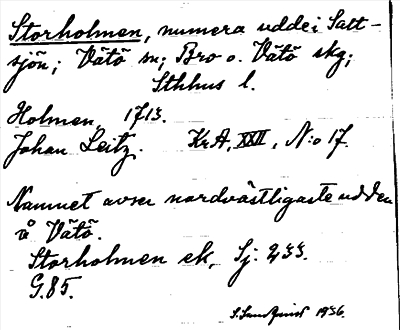 Storholmen, numera udde i Satt-
sjön; Vätö sn; Bro o. Vätö skg;
Sthhus l.
Holmen, 1713.
Johan Leitz. KrA, XXII, N:o 17.
Namnet avser nordvästligaste udden
å Vätö.
Storholmen ek, Sj. 233.
G.85.
1936.